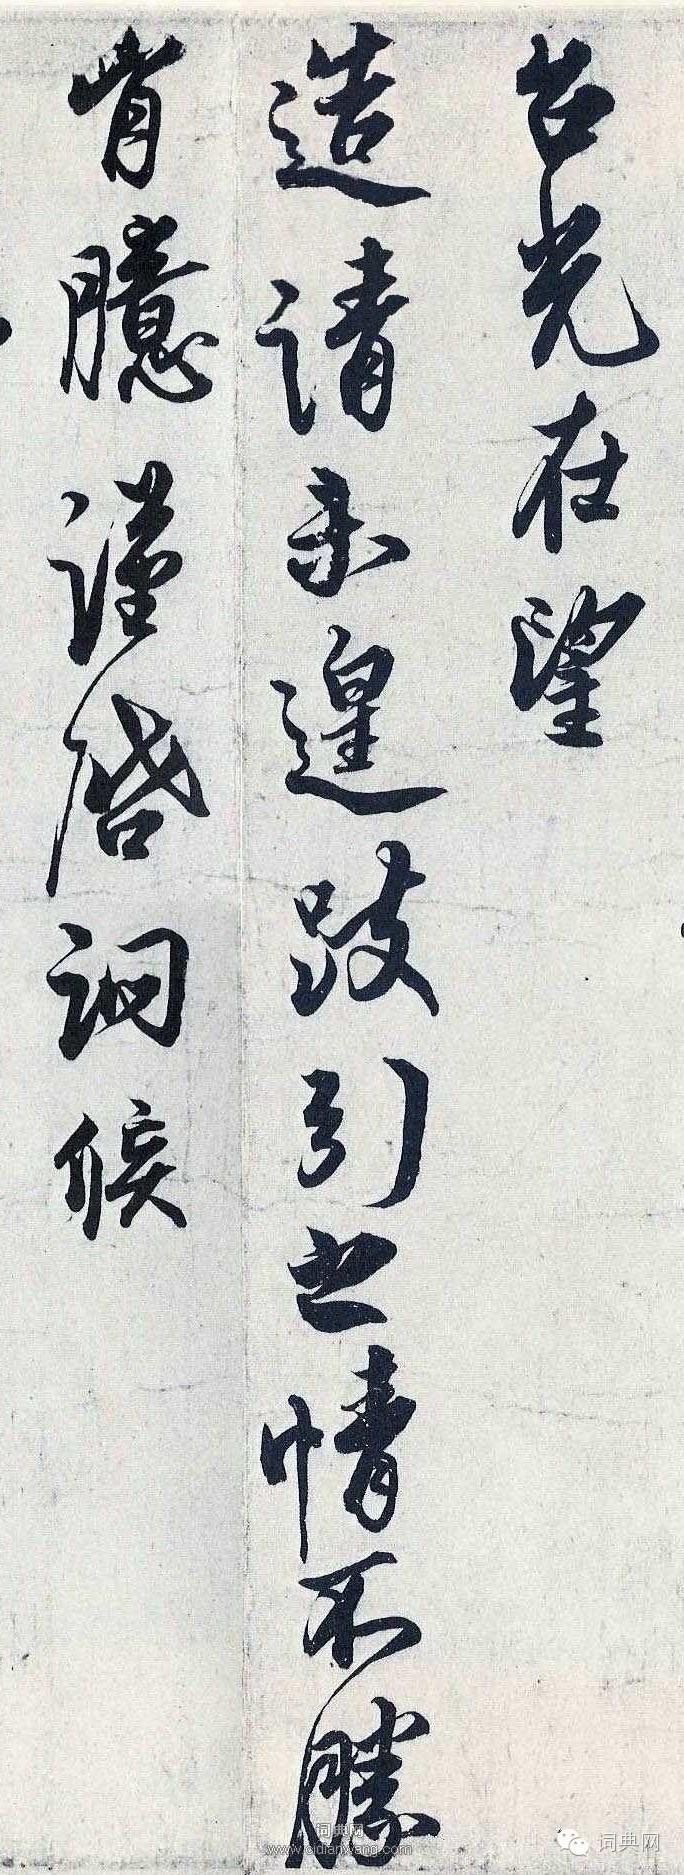 台光在望
造请未遑跂引之情不勝
胷臆谨啓詗候
词典网
www.cidianwang.com
词典网